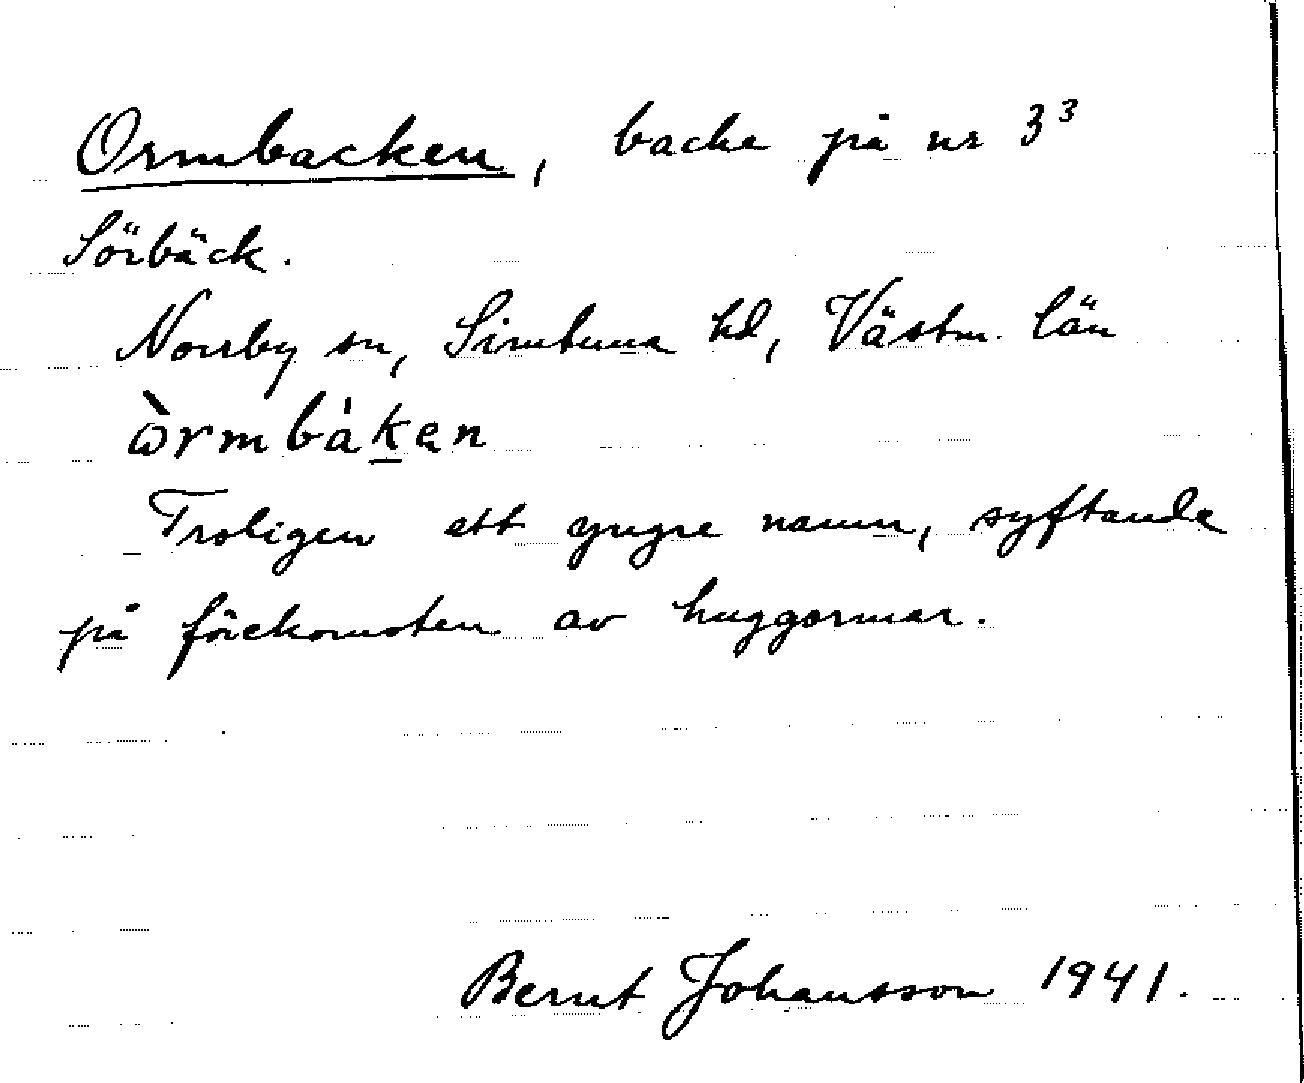 Ormbacken, backe på nr 3³
Sörbäck.
Norrby sn, Simtuna hd, Västm. län
ò̀rmbàk̲ən
Troligen ett yngre namn, syftande
på förekomsten av huggormar.
Bernt Johansson 1941.